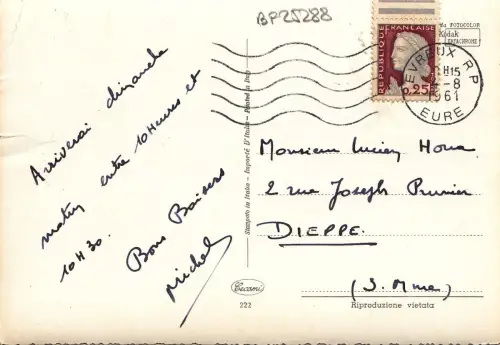 BP25288
Arriverai dimanche
matin entre 10 Heures et
10H30.
Bons Baisers
Michel
Stampato in Italia - Importé D'Italie - Printed in Italy
Ceconi
222
REPUBLIQUE FRANÇAISE
0,25
FOTOCOLOR
Kodak
EKTACHROME
EVREUX R.P.
H15
-8
1961
EURE
Monsieur Lucien
2 rue Joseph Prunier
DIEPPE.
(S. Mme)
Riproduzione vietata